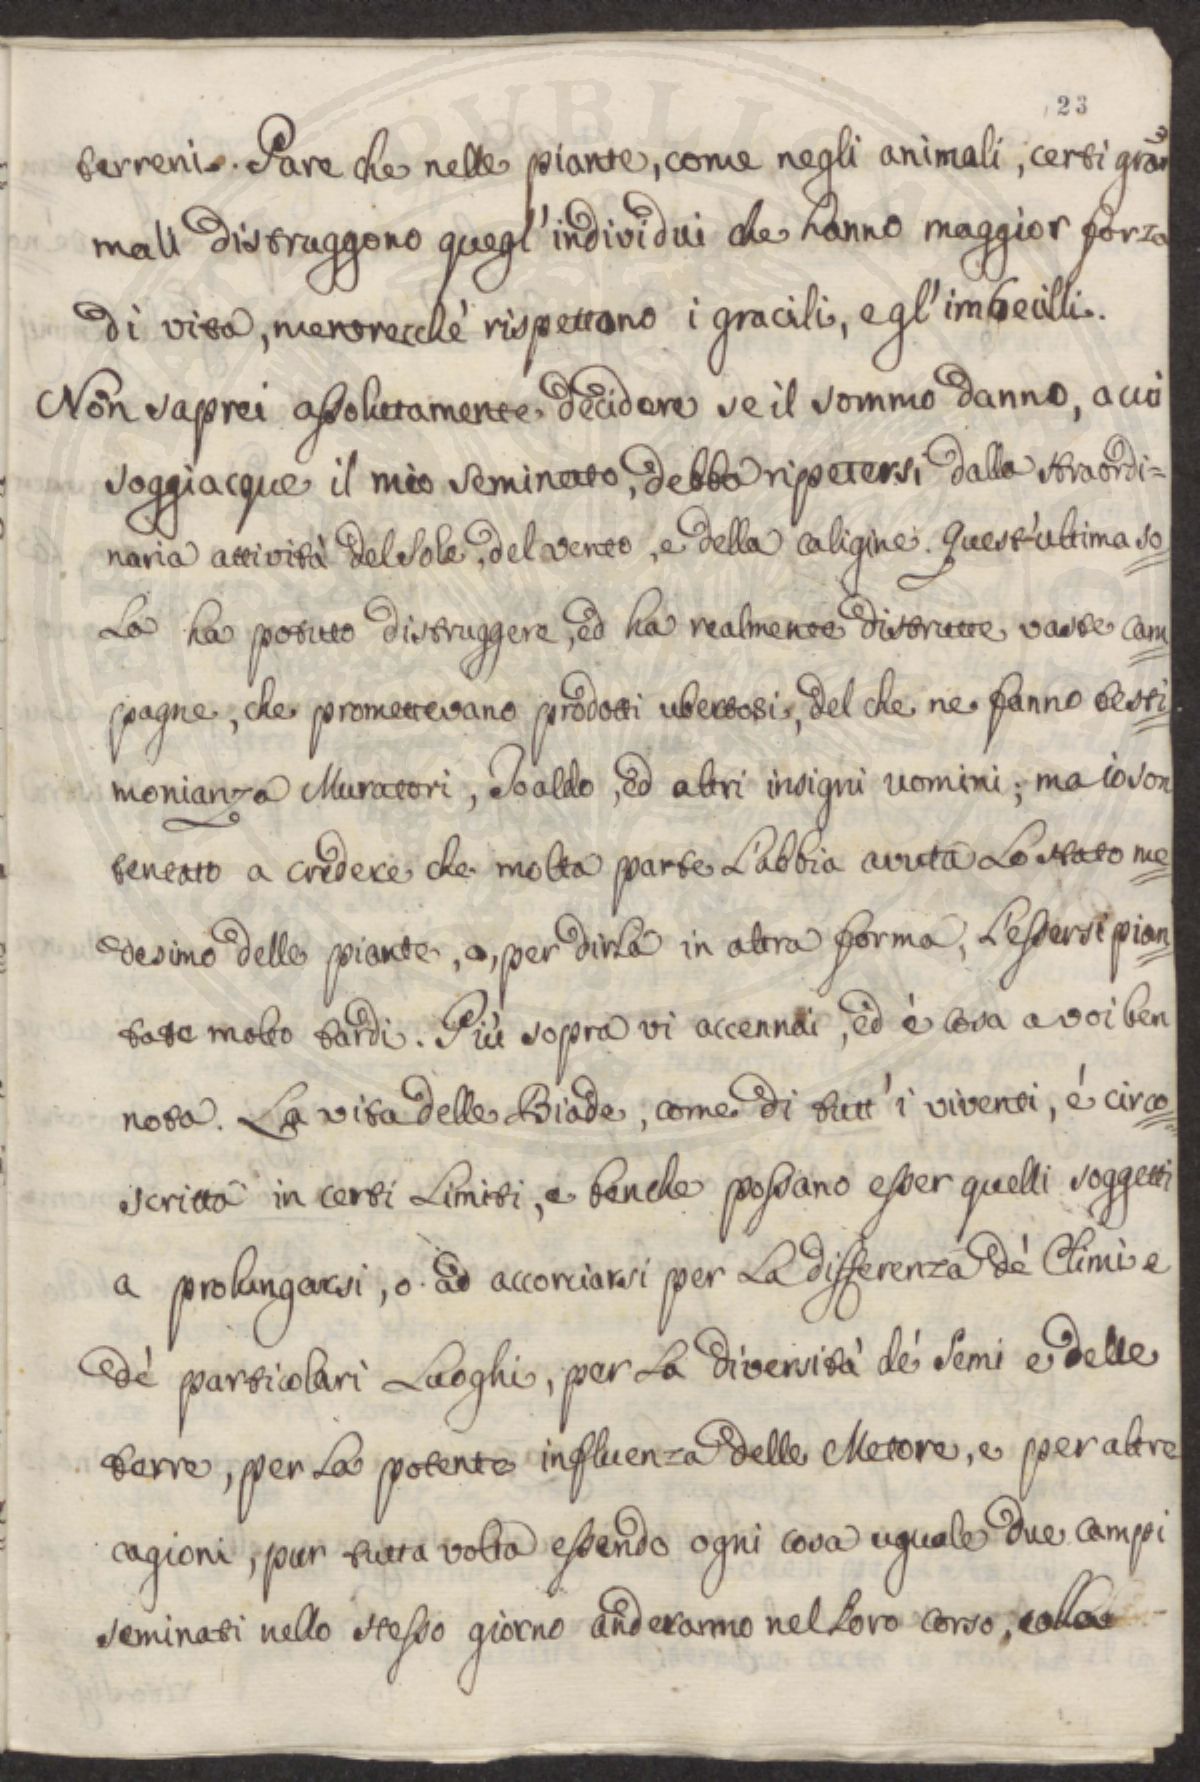 23
terreni. Pare che nelle piante, come negli animali, certi gran
mali distruggono quegl' individui che hanno maggior forza
di vita, mentrecché rispettano i gracili, e gl' imbecilli.
Non saprei assoluttamente decidere se il sommo danno, a cui
soggiacque il mio seminato, debba ripetersi dalla straordi=
naria attività del Sole, del vento, e della caligine. Quest'ultima so=
La ha potuto distruggere, ed ha realmente distrutte vaste cam=
pagne, che promettevano prodotti ubertosi, del che ne fanno testi=
monianza Muratori, Toaldo, ed altri insigni uomini; ma io son
tentato a credere che molta parte L'abbia avuta Lo stato me=
desimo delle piante, o, per dirLa in altra forma, L'essersi pian=
tate molto tardi. Più sopra vi accennai, ed è cosa a voi ben
nota. La vita delle Biade, come di tutt' i viventi, é circo=
scritta in certi Limiti, e benche possano esser quelli soggetti
a prolungarsi, o ad accorciarsi per La differenza dé Climi e
dé particolari Luoghi, per La diversità dé Semi e delle
terre, per La potente influenza delle Metore, e per altre
cagioni, pur tutta volta essendo ogni cosa uguale due campi
seminati nello stesso giorno anderanno nel Loro corso, colla